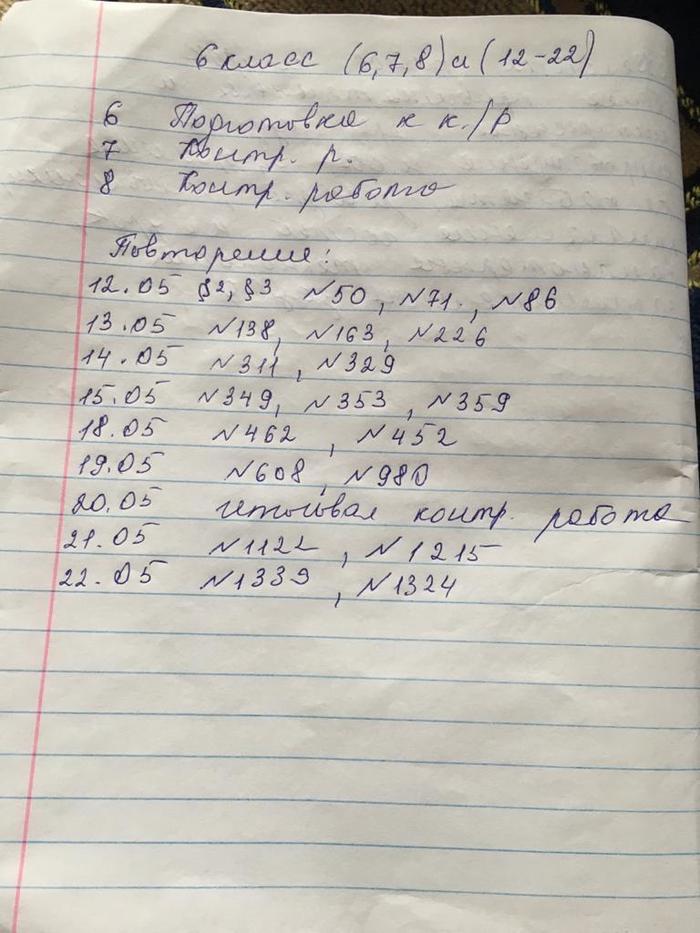 6 класс (6,7,8) и (12-22)
6 Подготовка к к./р
7 Контр. р.
8 Контр. работа
Повторение:
12.05 §2, §3 №50, №71, №86
13.05 №138, №163, №226
14.05 №311, №329
15.05 №349, №353, №359
18.05 №462, №452
19.05 №608, №980
20.05 итоговая контр. работа
21.05 №1122, №1215
22.05 №1339, №1324